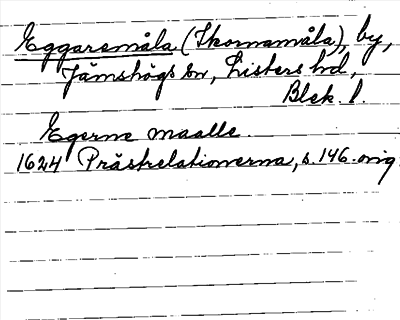 Eggarsmåla (Skomamåla), by,
Jämshögs sn, Listers hd,
Blek. l.
Egerne maalle.
1624 Prästrelationerna, s. 146. orig.